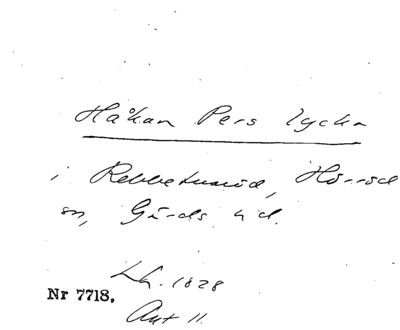 Håkan Pers lycka
i Rebbetuaröd, Hörröd
sn, Gärds hd.
Lh. 1828
Nr 7718.
Ant 11.